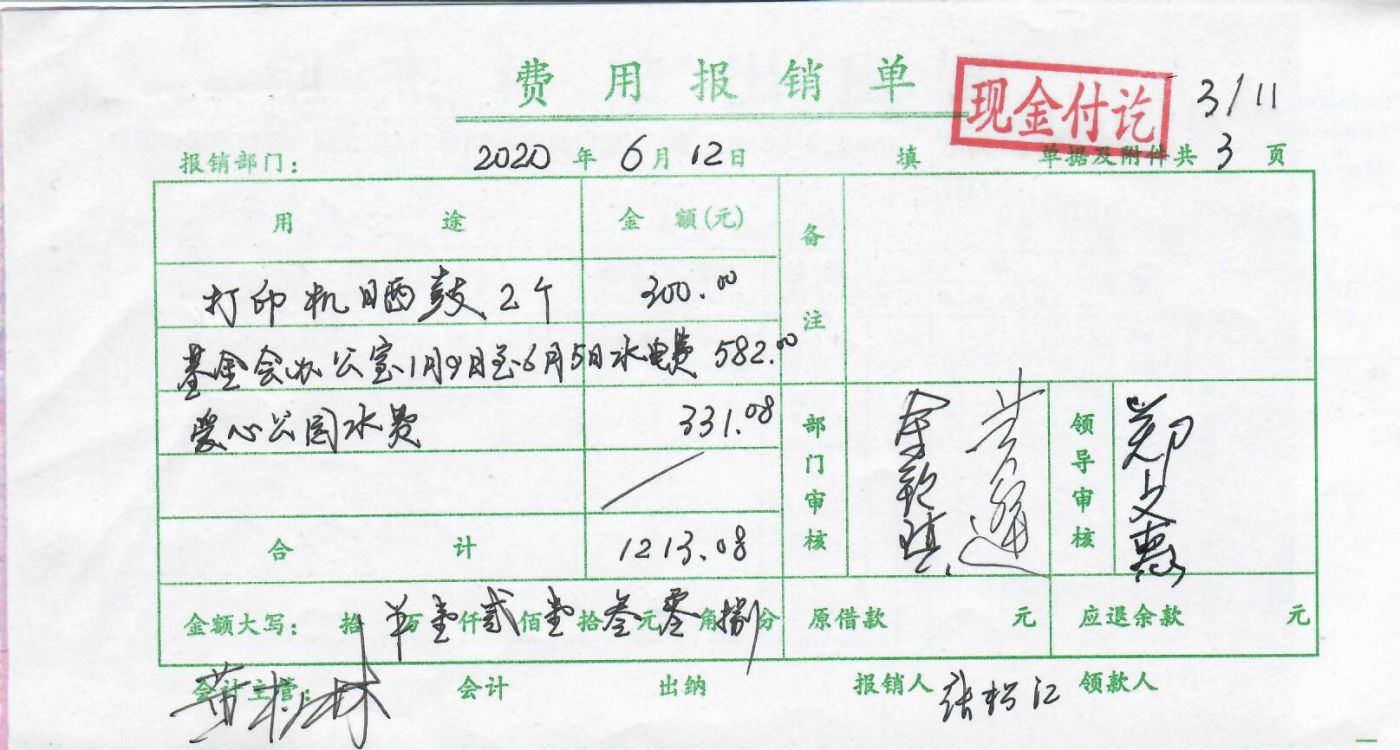 费用报销单
现金付讫
3/11
报销部门： 2020年6月12日 填 单据及附件共3页
用途 金额(元) 备注
打印机晒鼓2个 300.00
基金会办公室1月9日至6月5日水电费 582.00
爱心公园水费 331.08
部门审核 领导审核 郑文惠
合计 1213.08
金额大写： 拾 万壹仟贰佰壹拾叁元零角捌分 原借款 元 应退余款 元
会计主管： 会计 出纳 报销人 领款人